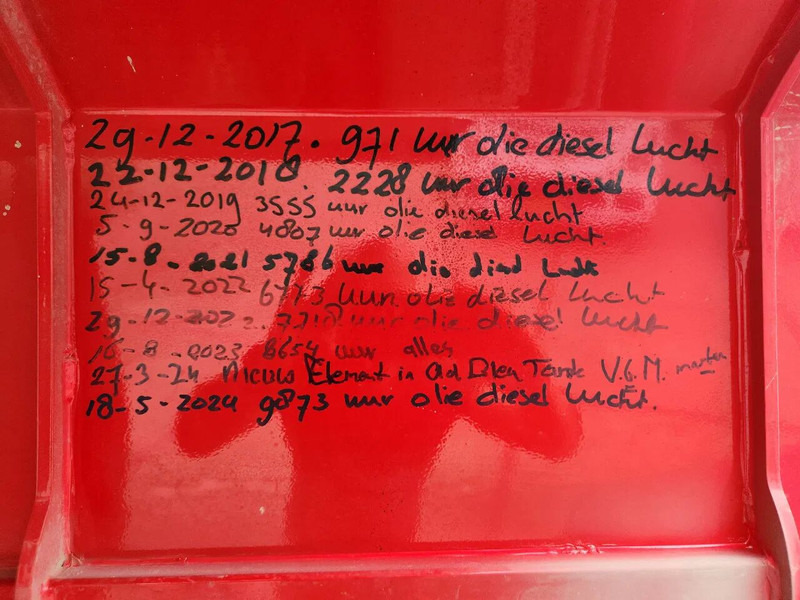 29-12-2017. 971 uur olie diesel lucht
22-12-2018. 2228 uur olie diesel lucht
24-12-2019 3555 uur olie diesel lucht
5-9-2020 4807 uur olie diesel lucht.
15-8-2021 5786 uur olie diesel lucht
15-4-2022 6773 uur olie diesel lucht
29-12-2022 uur olie diesel lucht
16-8-2023 8654 uur alles
27-3-24 Nieuw Element in Ad Blew V.G.M.
18-5-2024 9873 uur olie diesel lucht.